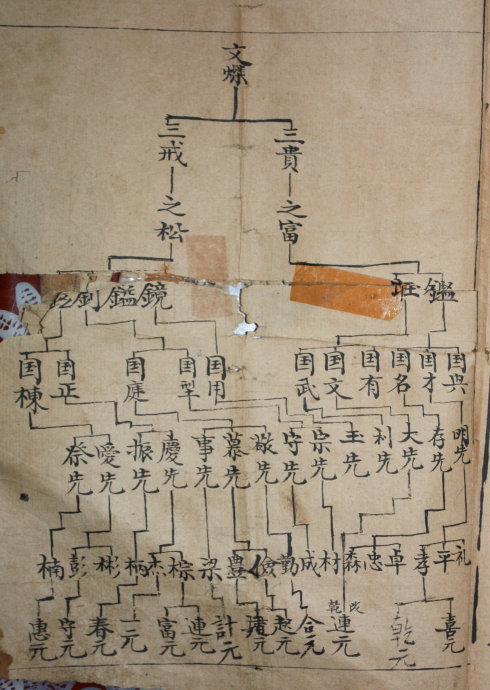 文燦
三貴 三戒
之富 之松
鑑 班 鏡 鎰 釗
国興 国才 国名 国有 国文 国武 国用 国型 国庭 国正 国棟
明先 存先 大先 礼先 玉先 宗先 守先 敬先 慕先 事先 慶先 振先 慶先 祭先
礼 平 孝 卓 忠 森 材 成 勤 儉 豊 梁 棕 杰 柄 彬 彭 楠
喜元 乾元 乾 改 連元 合元 起元 緒元 計元 連元 富元 二元 春元 守元 惠元